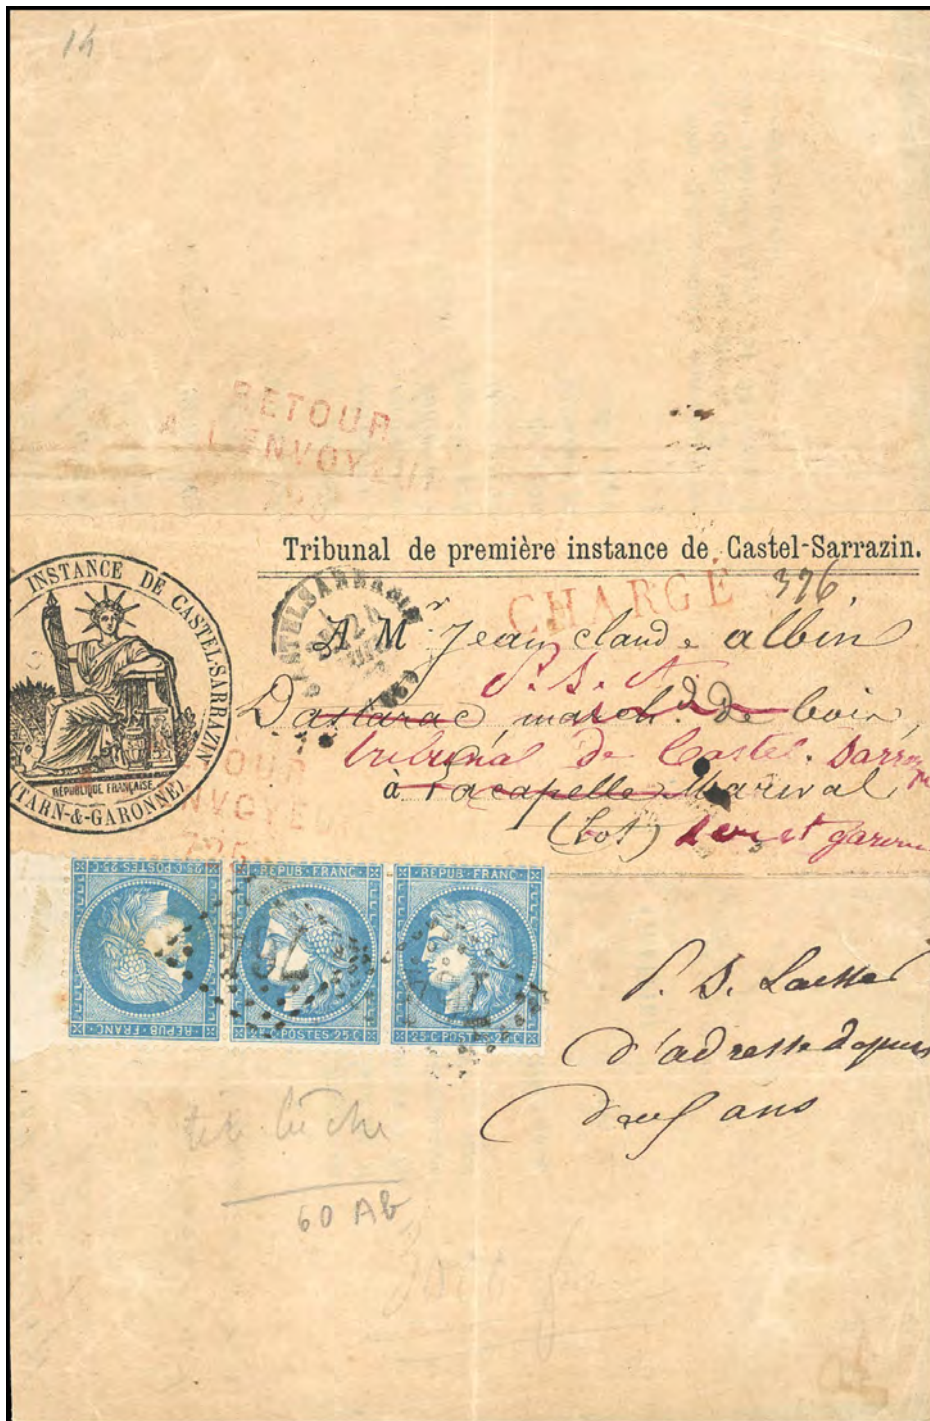 14
RETOUR
A L'ENVOYEUR
Tribunal de première instance de Castel-Sarrazin.
INSTANCE DE CASTEL-SARRAZIN
(TARN-&-GARONNE)
RÉPUBLIQUE FRANÇAISE
CASTELSARRASIN
24
CHARGÉ
376.
A Mr Jean Claude albin
P. S. A
Dastarac, marchd de bois,
tribunal de Castel. Sarra
à Lacapelle Marival
(Lot) tarn et garonne
OUR
NVOYEUR
725
25 C POSTES 25 C
REPUB FRANC
REPUB FRANC
25 C POSTES 25 C
REPUB FRANC
25 C POSTES 25 C
P. S. Laissé
d'adresse depuis
deux ans
tête bêche
60 Ab